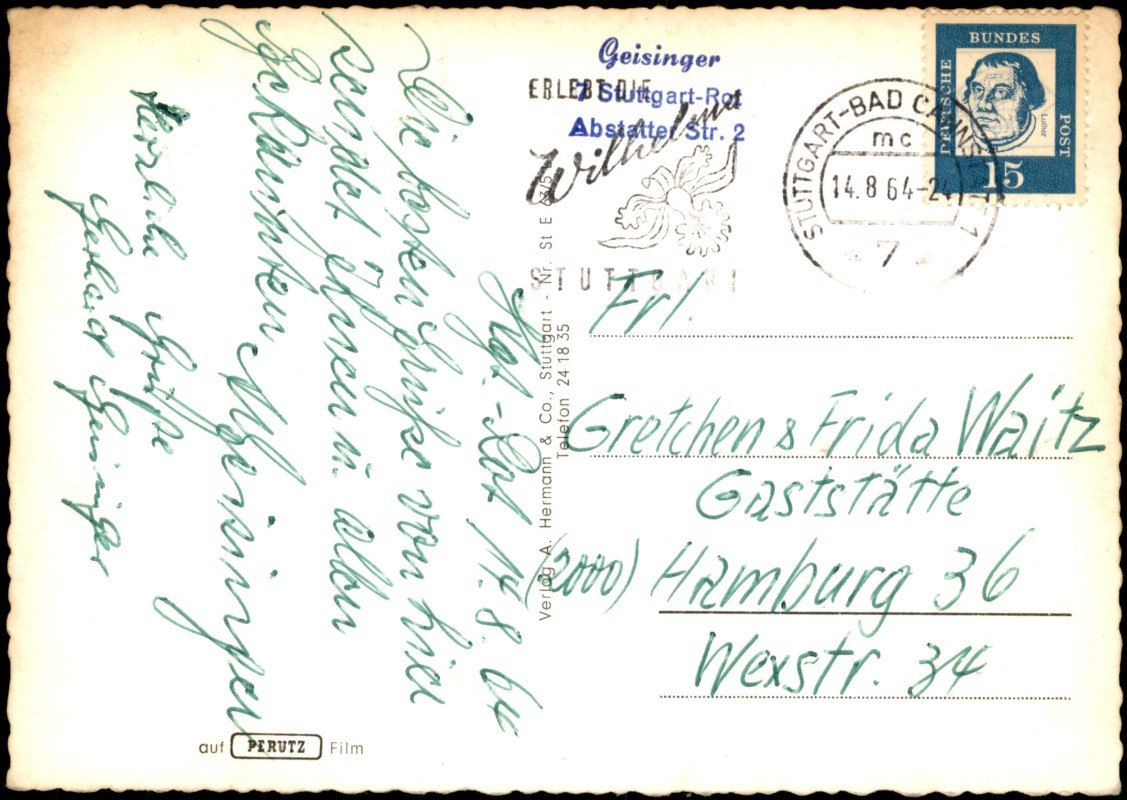 Stgt.-Rot 14.8.64
Die besten Grüße von hier
sendet Ihnen u. allen
Bekannten
Herzliche Grüße
Gerhard Geisinger
Geisinger
7 Stuttgart-Rot
Abstatter Str. 2
ERLEBT DIE
Wilhelma
STUTTGART
STUTTGART-BAD CANNSTATT 1
mc
14.8.64-24
7
DEUTSCHE BUNDESPOST
Luther
15
Frl.
Gretchen & Frida Waitz
Gaststätte
(2000) Hamburg 36
Wexstr. 34
Verlag A. Hermann & Co., Stuttgart - Nr. St E
Telefon 24 18 35
auf PERUTZ Film